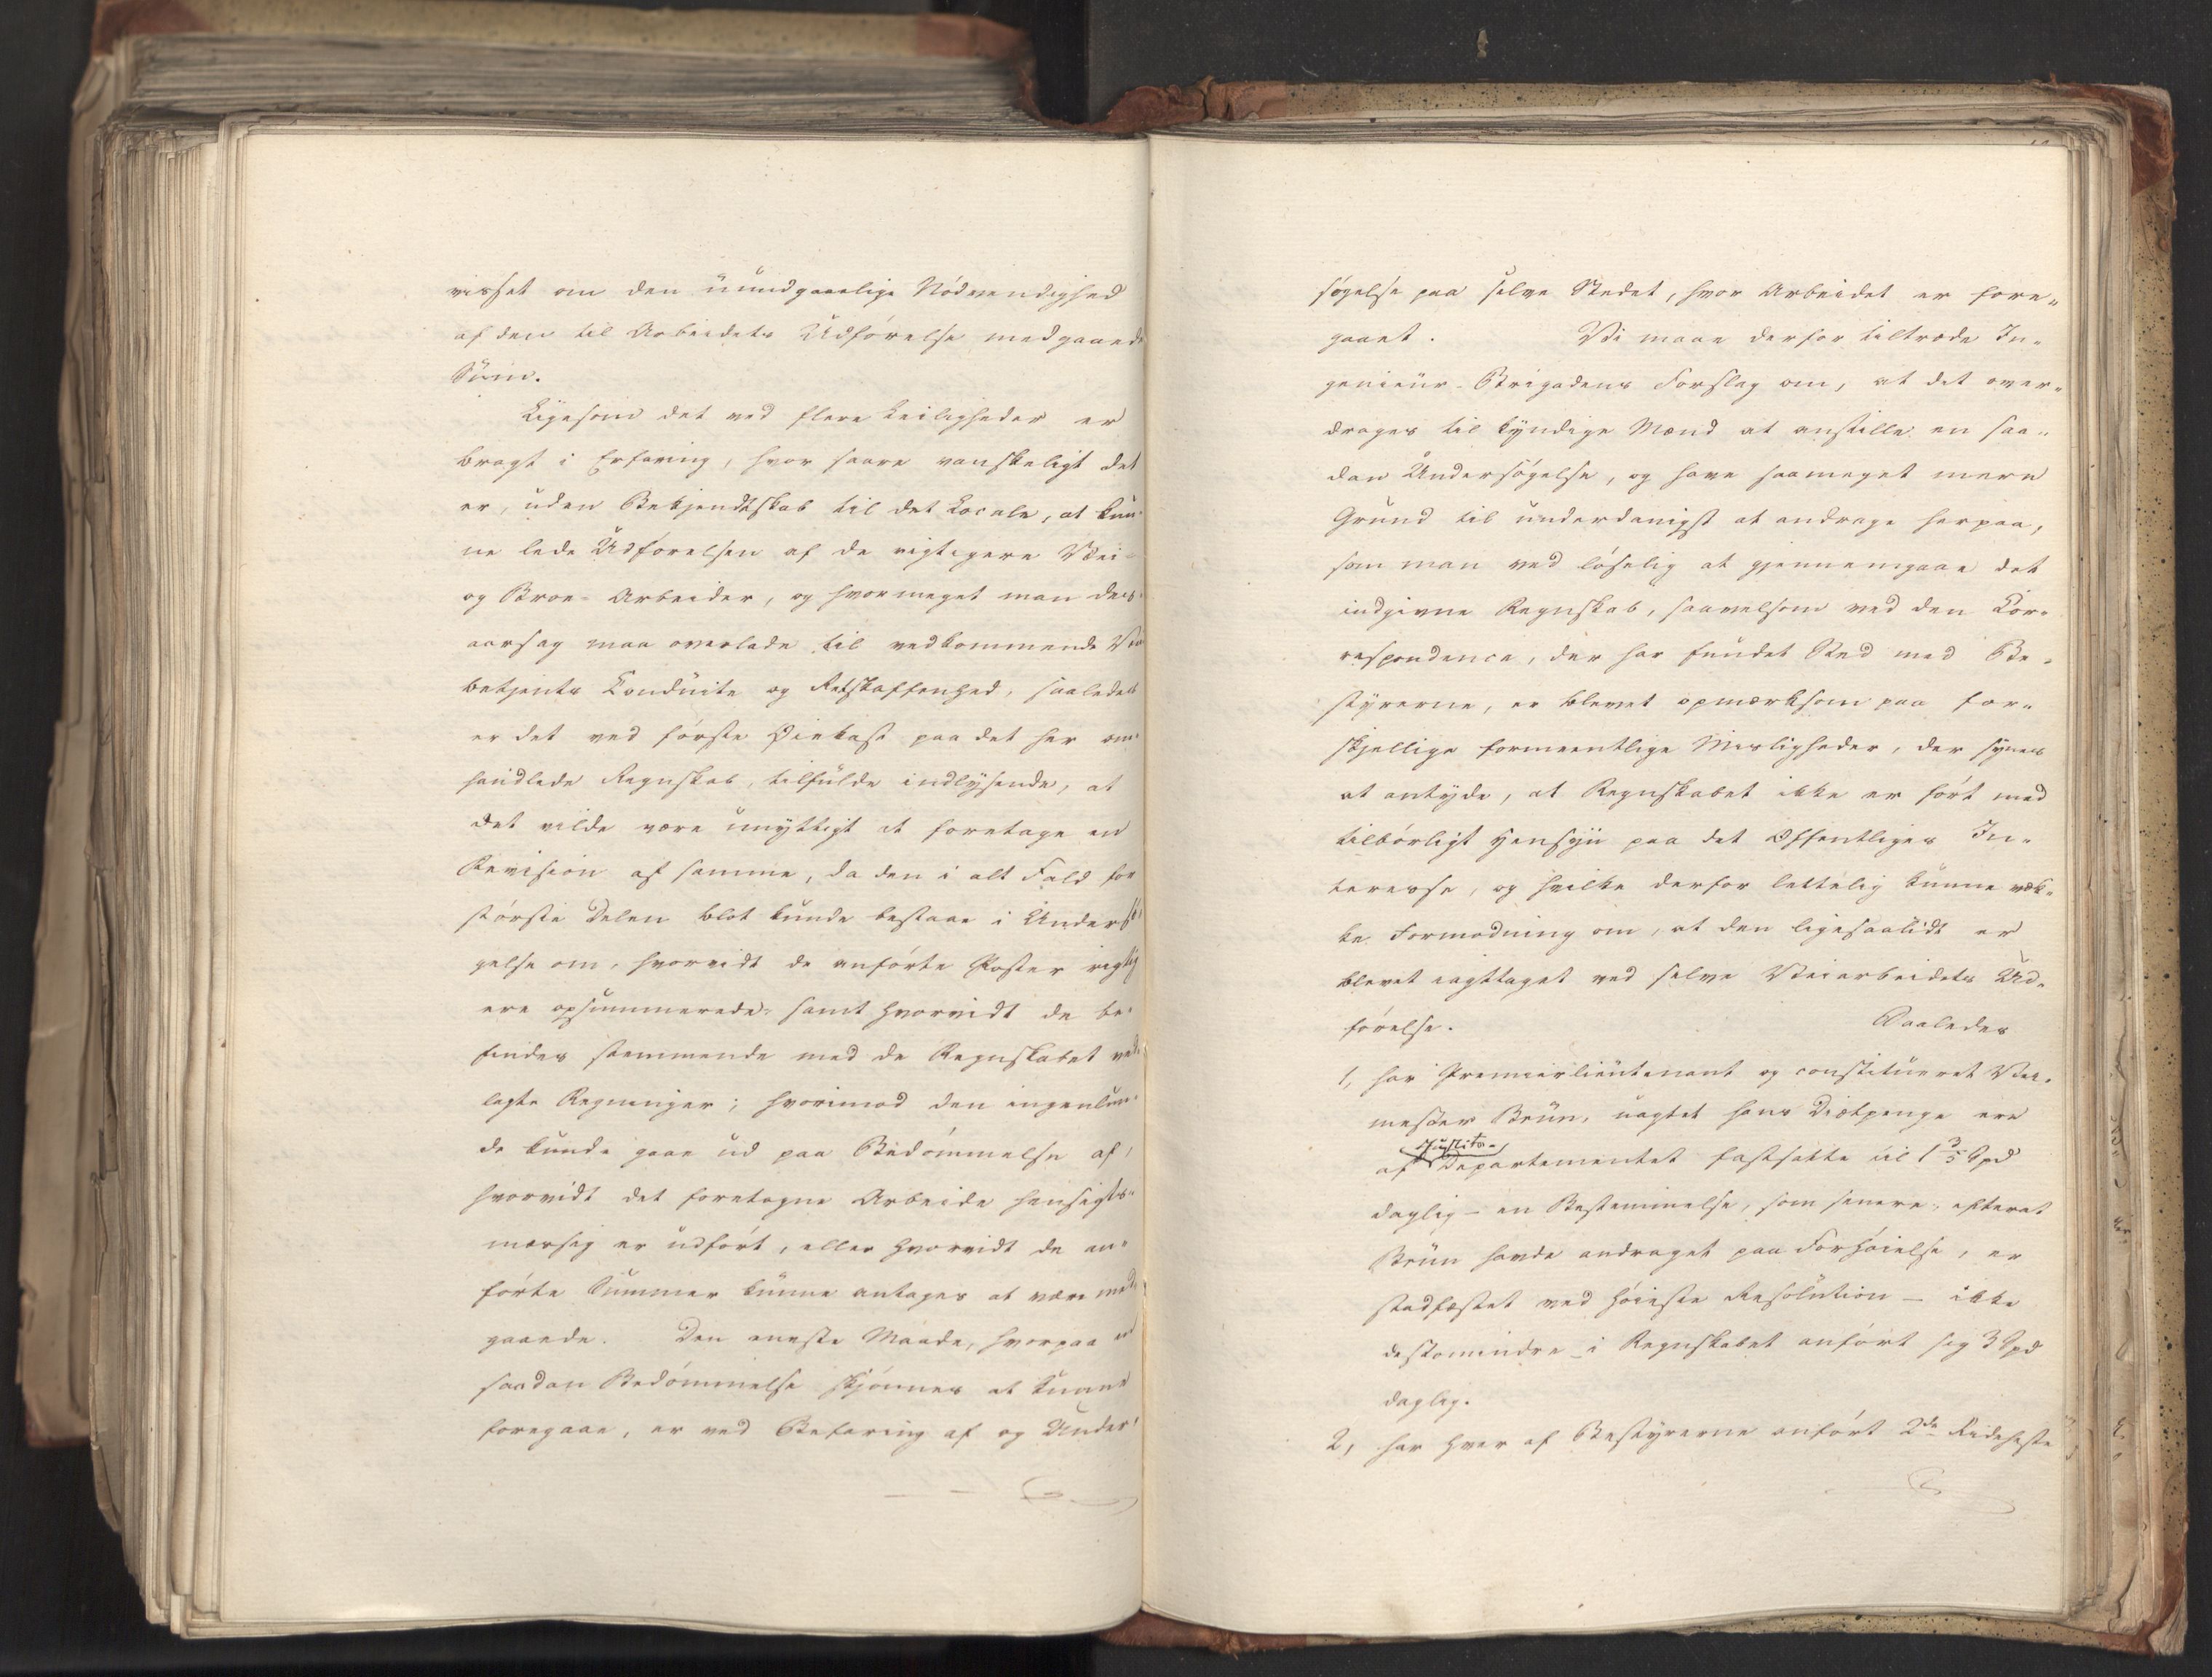 visset om den uundgaaelige Nödvendighed
af den til Arbeidets Udförelse medgaaede
Sum.
Ligesom det ved flere Leiligheder er
bragt i Erfaring, hvor saare vanskeligt det
er, uden Bekjendtskab til det Locale, at kun-
ne lede Udförelsen af de vigtigere Vei-
og Broe-Arbeider, og hvormeget man des-
aarsag maa overlade til vedkommende Vei
betjents Conduite og Retskaffenhed, saaledes
er det ved förste Øiekast paa det her om-
handlede Regnskab, tilfulde indlysende, at
det vilde være unyttigt at foretage en
Revision af samme, da den i alt Fald for
störste Delen blot kunde bestaae i Undersö-
gelse om, hvorvidt de anförte Poster rigtig
ere opsummerede samt hvorvidt de be-
findes stemmende med de Regnskabet ved-
lagte Regninger; hvorimod den ingenlun-
de kunde gaae ud paa Bedömmelse af,
hvorvidt det foretagne Arbeide hensigts-
mæssig er udfört, eller hvorvidt de an-
förte Summer kunne antages at være med-
gaaede. Den eneste Maade, hvorpaa en
saadan Bedömmelse skjönnes at kunne
foregaae, er ved Befaring af og Under-
sögelse paa selve Stedet, hvor Arbeidet er fore-
gaaet. Vi maae derfor tiltræde In-
genieur-Brigadens Forslag om, at det over-
drages til kyndige Mænd at anstille en saa-
dan Undersögelse, og have saameget mere
Grund til underdanigst at andrage herpaa,
som man ved löselig at gjennemgaae det
indgivne Regnskab, saavelsom ved den Cor-
respondence, der har fundet Sted med Be-
styrerne, er blevet opmærksom paa for-
skjellige formeentlige Misligheder, der synes
at antyde, at Regnskabet ikke er fört med
tilbörligt Hensyn paa det Offentliges In-
teresse, og hvilke derfor lettelig kunne væk-
ke Formodning om, at den ligesaalidt er
blevet iagttaget ved selve Veiarbeidets Ud-
förelse. Saaledes
1, har Premierlieutenant og constitueret Vei-
mester Brun, uagtet hans Diætpenge ere
Justits-
af Departementet fastsatte til 1 3/5 Spd
daglig – en Bestemmelse, som senere, efterat
Brun havde andraget paa Forhöielse, er
stadfæstet ved höieste Resolution – ikke
destomindre i Regnskabet anfört sig 3 Spd
daglig.
2, har hver af Bestyrerne anfört 2de Rideheste